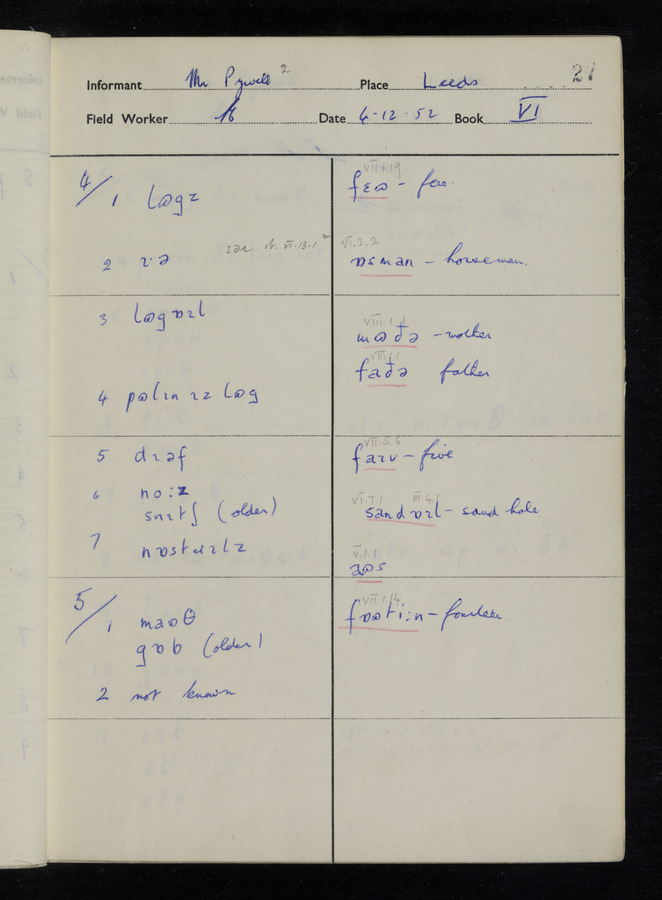 27
Informant Mr Pywell 2 Place Leeds
Field Worker Date 4.12.52 Book VI
4/1 lʊgz
2 ɪ·ə
3 lʊgɒɪl
4 pʊlɪn ɪz lʊg
5 dɪəf
6 no:z
snɪtʃ (older)
7 nɒstɹɪlz
5/1 maʊθ
gɒb (older)
2 not known
VII.1.19
fɛʊ - few.
VI.2.2
ɒsman - horseman.
VIII.1.1
mʊðə - mother
VIII.1.1
faðə father
VII.5.6
faɪv - five
VI.7.1 III.4.1
sandɒɪl - sand hole
V.1.1
aʊs
VII.1.14
fɒʊti:n - fourteen.